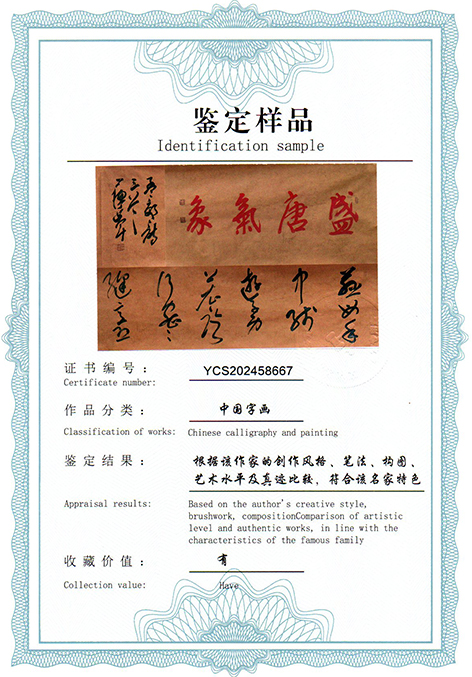 鉴定样品
Identification sample
盛唐氣象
证书编号： YCS202458667
Certificate number:
作品分类： 中国字画
Classification of works: Chinese calligraphy and painting
鉴定结果： 根据该作家的创作风格、笔法、构图、
艺术水平及真迹比较，符合该名家特色
Appraisal results: Based on the author's creative style,
brushwork, compositionComparison of artistic
level and authentic works, in line with the
characteristics of the famous family
收藏价值： 有
Collection value: Have